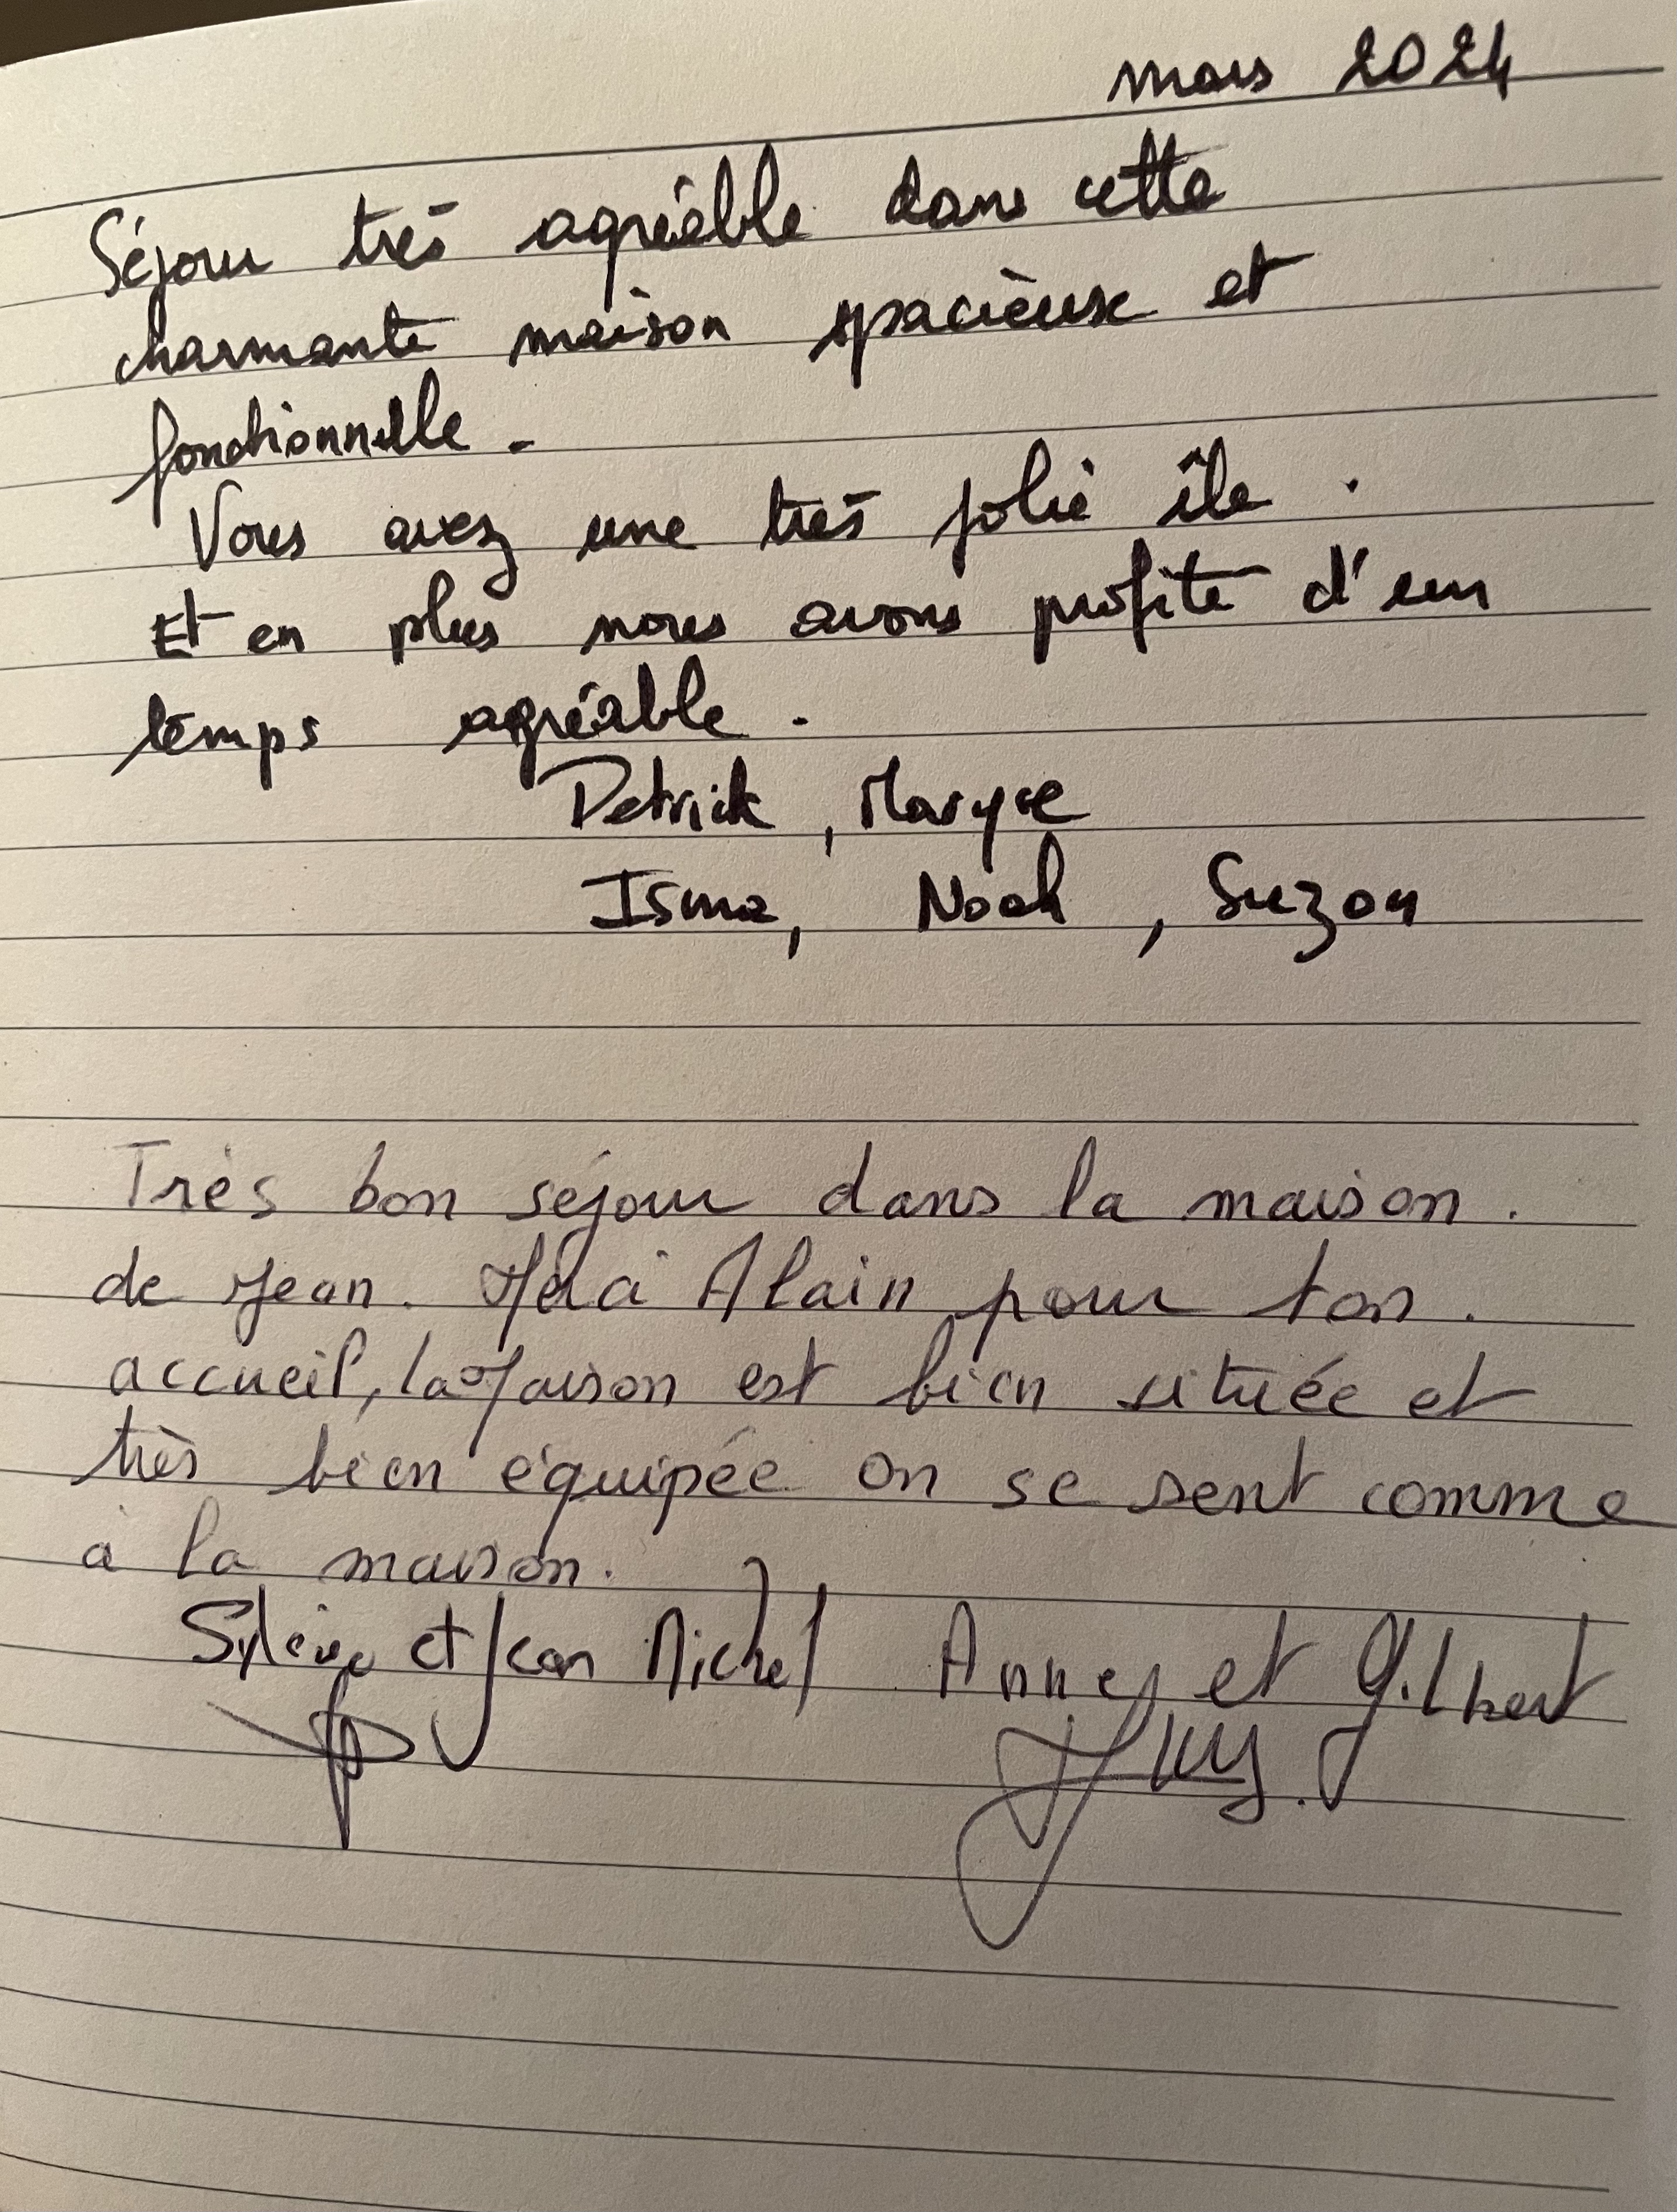 mars 2024
Séjour très agréable dans cette
charmante maison spacieuse et
fonctionnelle.
Vous avez une très jolie île.
Et en plus nous avons profité d'un
temps agréable.
Patrick, Maryse
Isma, Noah, Suzon
Très bon séjour dans la maison.
de Jean. Merci Alain pour ton.
accueil, la Maison est bien située et
très bien équipée on se sent comme
à la maison.
Sylvie et Jean Michel Anne et Gilbert